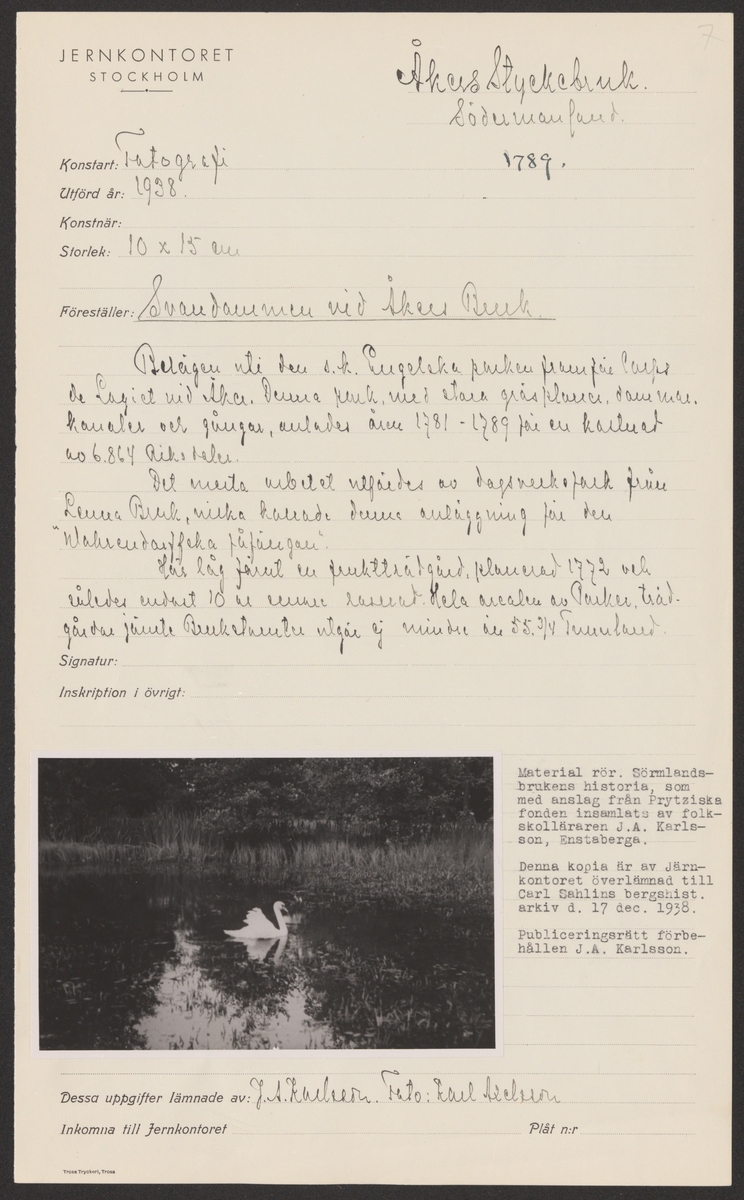 7
JERNKONTORET
STOCKHOLM
Åkers Styckebruk.
Södermanland.
1789.
Konstart: Fotografi
Utförd år: 1938.
Konstnär:
Storlek: 10 x 15 cm
Föreställer: Svandammen vid Åkers Bruk.
Belägen uti den s.k. Engelska parken framför Corps
de Logiet vid Åker. Denna park, med stora gräsplaner, dammar,
kanaler och gångar, anlades åren 1781-1789 för en kostnad
av 6.864 Riksdaler.
Det mesta arbetet utfördes av dagsverksfolk från
Lenna Bruk, vilka kallade denna anläggning för den
"Wahrendorffska fåfängan".
Här låg förut en fruktträdgård, planerad 1772 och
således endast 10 år senare raserad. Hela arealen av Parken, träd-
gårdar jämte Bruketomter utgör ej mindre än 55.3/4 Tunnland.
Signatur:
Inskription i övrigt:
Material rör. Sörmlands-
brukens historia, som
med anslag från Prytziska
fonden insamlats av folk-
skolläraren J.A. Karls-
son, Enstaberga.
Denna kopia är av Järn-
kontoret överlämnad till
Carl Sahlins bergshist.
arkiv d. 17 dec. 1938.
Publiceringsrätt förbe-
hållen J.A. Karlsson.
Dessa uppgifter lämnade av: J.A. Karlsson. Foto: Karl Axelsson
Inkomna till Jernkontoret
Plåt n:r
Trosa Tryckeri, Trosa